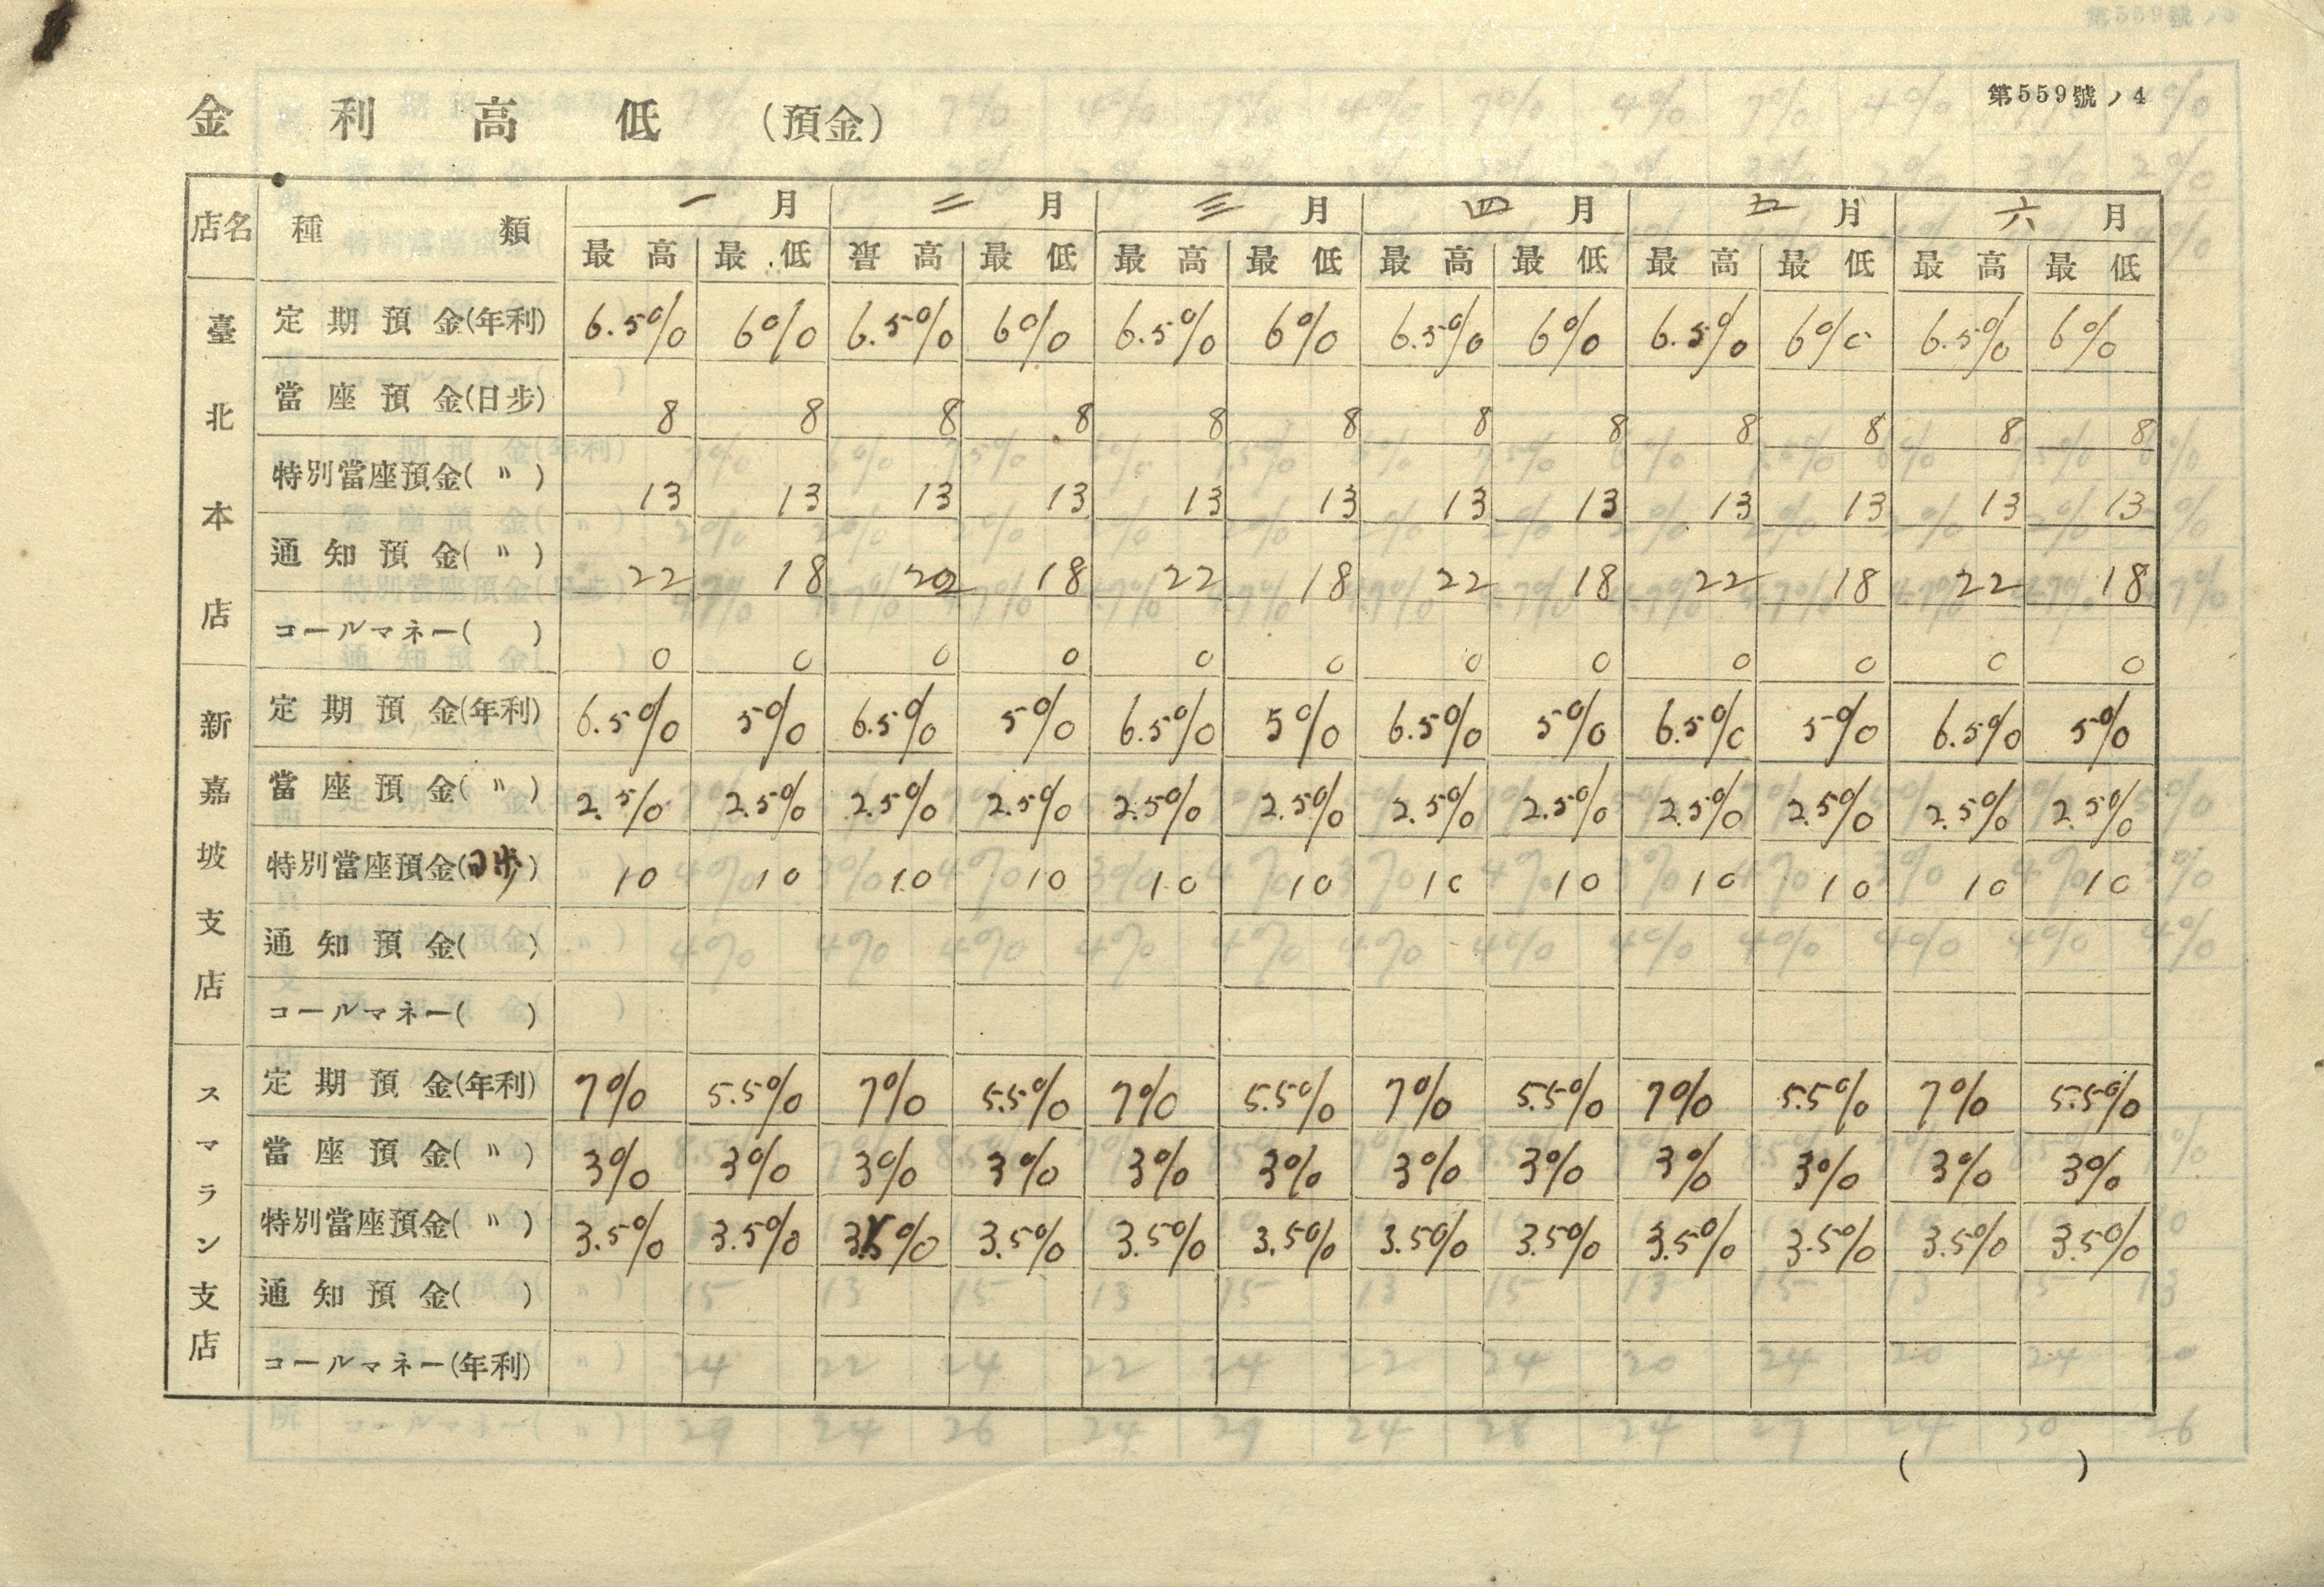 第559號ノ4
金利高低 (預金)
店名 種類 一月 二月 三月 四月 五月 六月
最高 最低 最高 最低 最高 最低 最高 最低 最高 最低 最高 最低
臺北本店
定期預金(年利) 6.5% 6% 6.5% 6% 6.5% 6% 6.5% 6% 6.5% 6% 6.5% 6%
當座預金(日步) 8 8 8 8 8 8 8 8 8 8 8 8
特別當座預金(〃) 13 13 13 13 13 13 13 13 13 13 13 13
通知預金(〃) 22 18 22 18 22 18 22 18 22 18 22 18
コールマネー( ) 0 0 0 0 0 0 0 0 0 0 0 0
新嘉坡支店
定期預金(年利) 6.5% 5% 6.5% 5% 6.5% 5% 6.5% 5% 6.5% 5% 6.5% 5%
當座預金(〃) 2.5% 2.5% 2.5% 2.5% 2.5% 2.5% 2.5% 2.5% 2.5% 2.5% 2.5% 2.5%
特別當座預金(日步) 10 10 10 10 10 10 10 10 10 10 10 10
通知預金( )
コールマネー( )
スマラン支店
定期預金(年利) 7% 5.5% 7% 5.5% 7% 5.5% 7% 5.5% 7% 5.5% 7% 5.5%
當座預金(〃) 3% 3% 3% 3% 3% 3% 3% 3% 3% 3% 3% 3%
特別當座預金(〃) 3.5% 3.5% 3.5% 3.5% 3.5% 3.5% 3.5% 3.5% 3.5% 3.5% 3.5% 3.5%
通知預金( )
コールマネー(年利)
( )